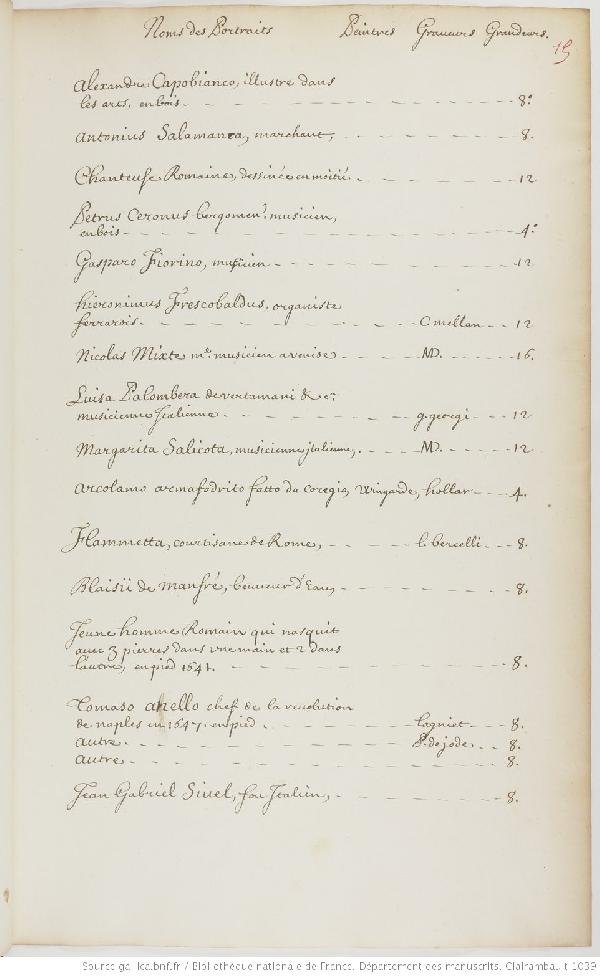 Noms des Portraits Peintres Graveurs Grandeurs.
15
Alexandre Capobianco, illustre dans
les arts, en bois. 8.º
Antonius Salamanca, marchant, 8.
Chanteuse Romaine, dessinée en moitié. 12
Petrus Ceronus bergomen.ˢ musicien,
en bois 4.º
Gasparo Fiorino, musicien 12
hieronimus Frescobaldus, organiste
ferrarois. C. mellan 12
Nicolas Mixte m.ᵉ musicien a venise MD. 16.
Luisa Palombera de vertamani &c.ª
musicienne Italienne g. georgi 12
Margarita Salicota, musicienne italienne, MD. 12
Arcolamo armafodrito fatto da coregio, Wingarde, hollar 4.
Flammetta, courtisane de Rome, l. bercelli 8.
Blaisii de manfré, beuveur d'Eau, 8.
Jeune homme Romain qui nasquit
avec 3 pierres dans une main et 2 dans
l'autre, en pied 1641. 8.
Tomaso anello chef de la revolution
de naples in 1647. en pied lagniet 8.
autre P. de jode 8.
autre 8.
Jean Gabriel Sivel, fou Italien, 8.
Source gallica.bnf.fr / Bibliothèque nationale de France. Département des manuscrits. Clairambault 1039